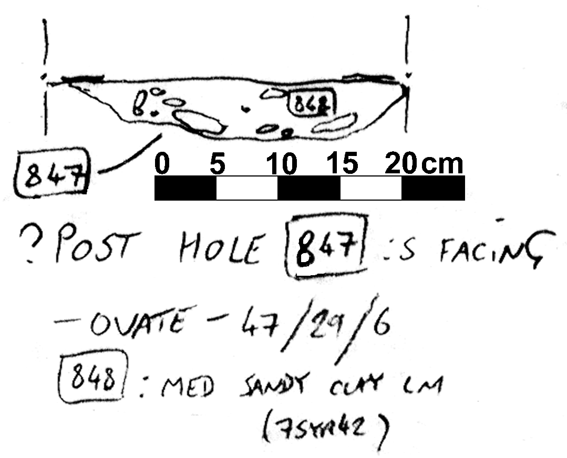 848
847
0 5 10 15 20 cm
? POST HOLE 847 : S FACING
- OVATE - 47/29/6
848 : MED SANDY CLAY LM
(7.5YR42)